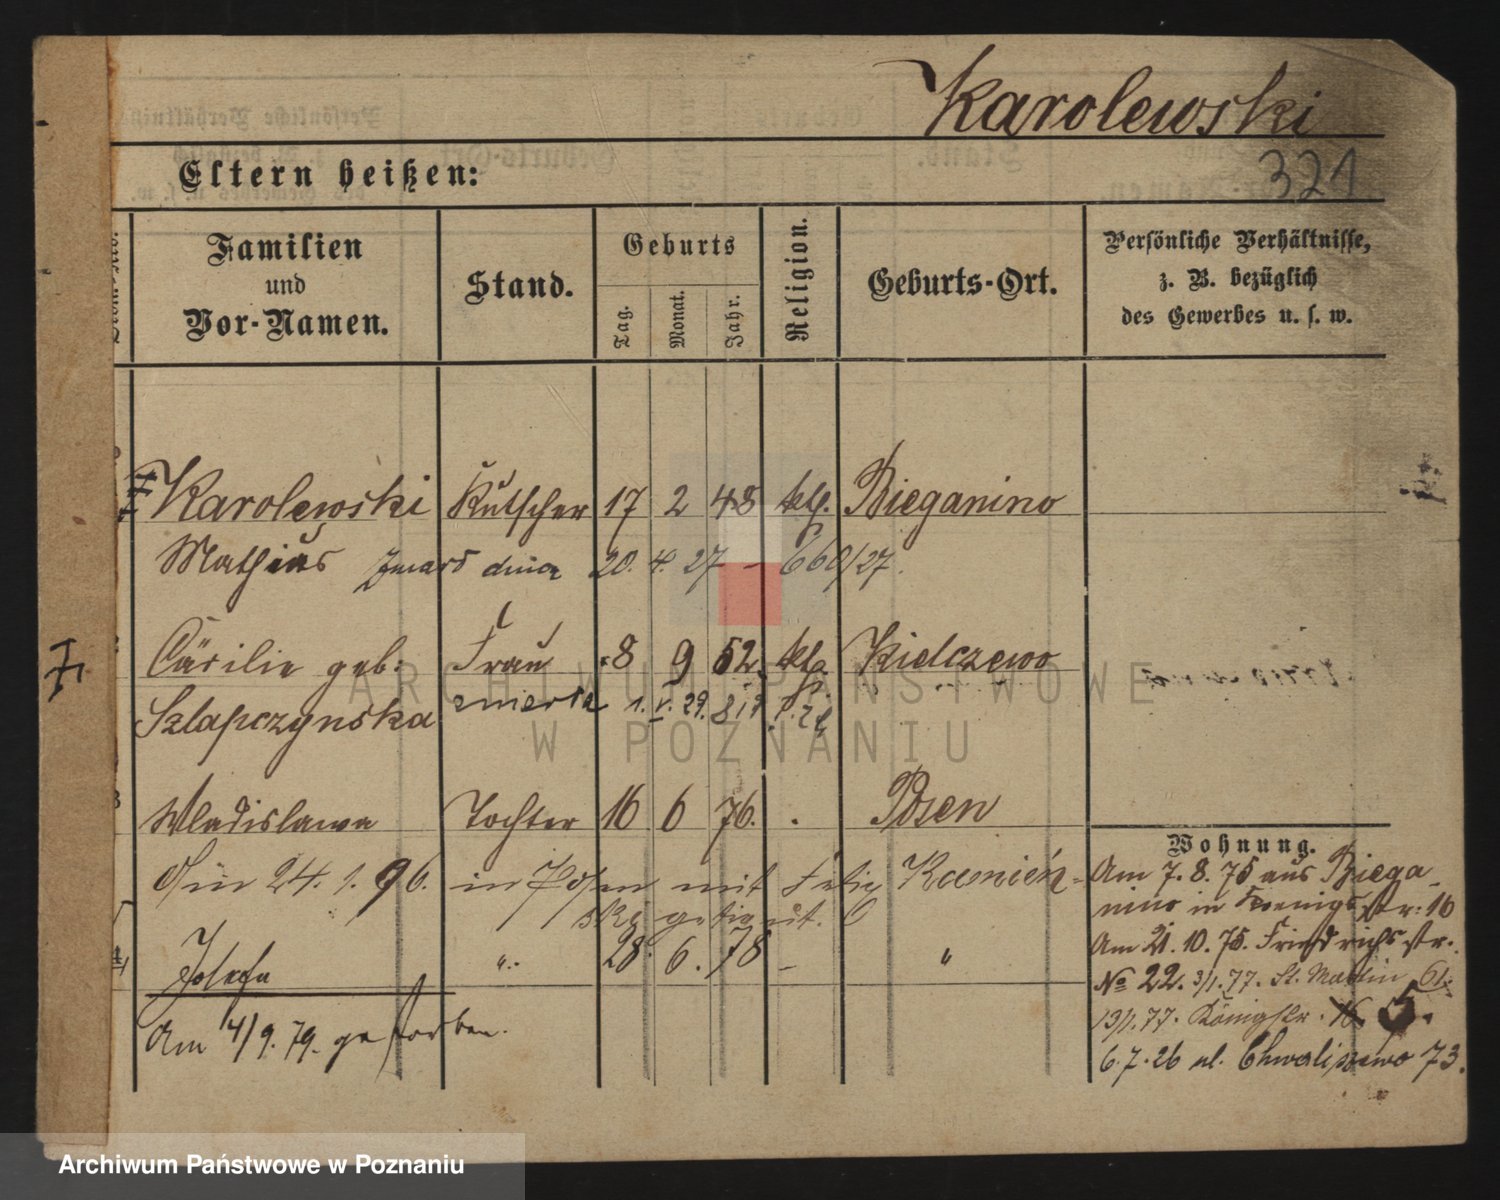 Karolewski
Eltern heißen:
321
Familien
und
Vor-Namen.
Stand.
Geburts
Tag.
Monat.
Jahr.
Religion.
Geburts-Ort.
Persönliche Verhältnisse,
z. B. bezüglich
des Gewerbes u. s. w.
Karolewski Kutscher 17 2 48 kth. Bieganino
Mathias zmarł dnia 20. 4. 27 – 660/27.
Cäcilie geb: Frau 8 9 52 kth. Kielczewo
Szlapczynska zmarła 1. V. 29.
Wladislawa Tochter 16 6 76. Posen
24. 1. 96. in Posen mit Kamień-
ski getraut.
Josefa 28. 6. 78 – "
Am 4/9. 79. gestorben.
Wohnung.
Am 7. 8. 75 aus Biega-
nino in Koenigsstr: 16
Am 21. 10. 75. Friedrichsstr.
No 22. 3/1. 77. St. Martin 61.
13/1. 77. Königstr. 16 5.
6.7.26 ul. Chwaliszewo 73.
ARCHIWUM PAŃSTWOWE
W POZNANIU
Archiwum Państwowe w Poznaniu